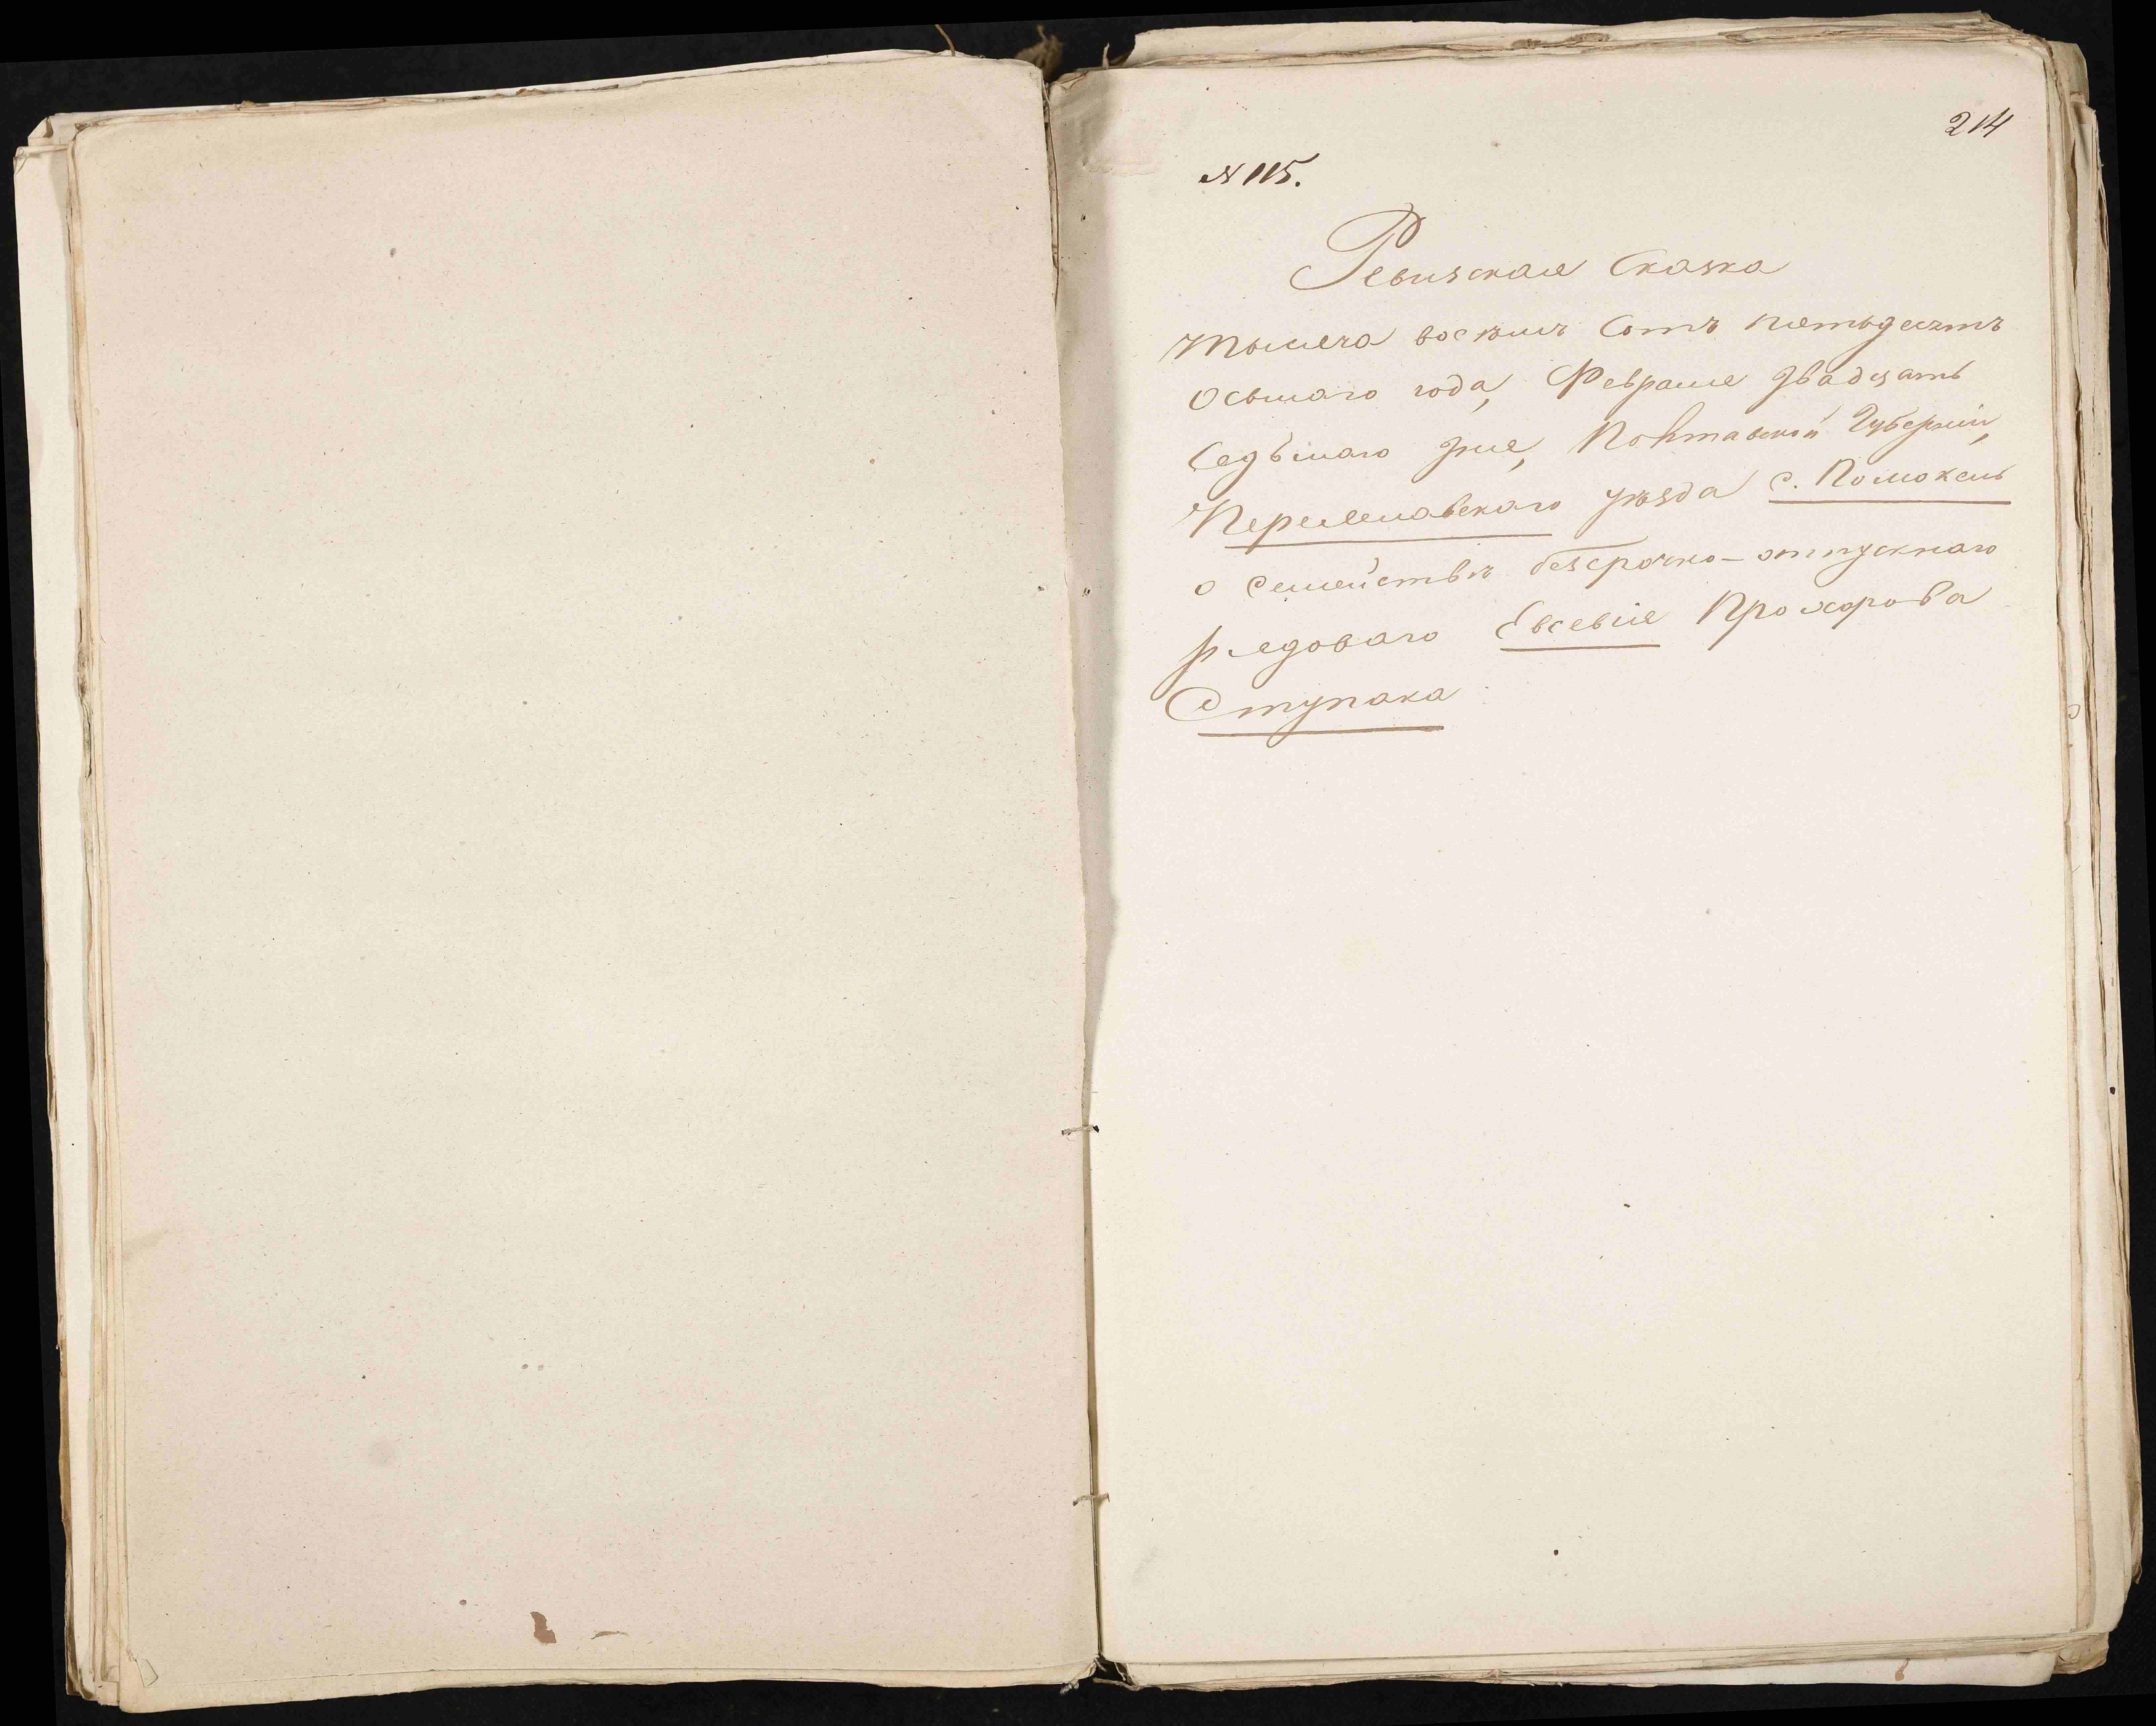 214
№ 115.
Ревизская Сказка
Тысяча восѣмъ Сотъ пятьдесятъ
Осьмаго года, Февраля двадцать
Седьмаго дня, Полтавской Губерніи,
Переяславскаго уѣзда с. Помоклъ
о Семействѣ безсрочно-отпускнаго
рядоваго Евсевія Прохорова
Ступака